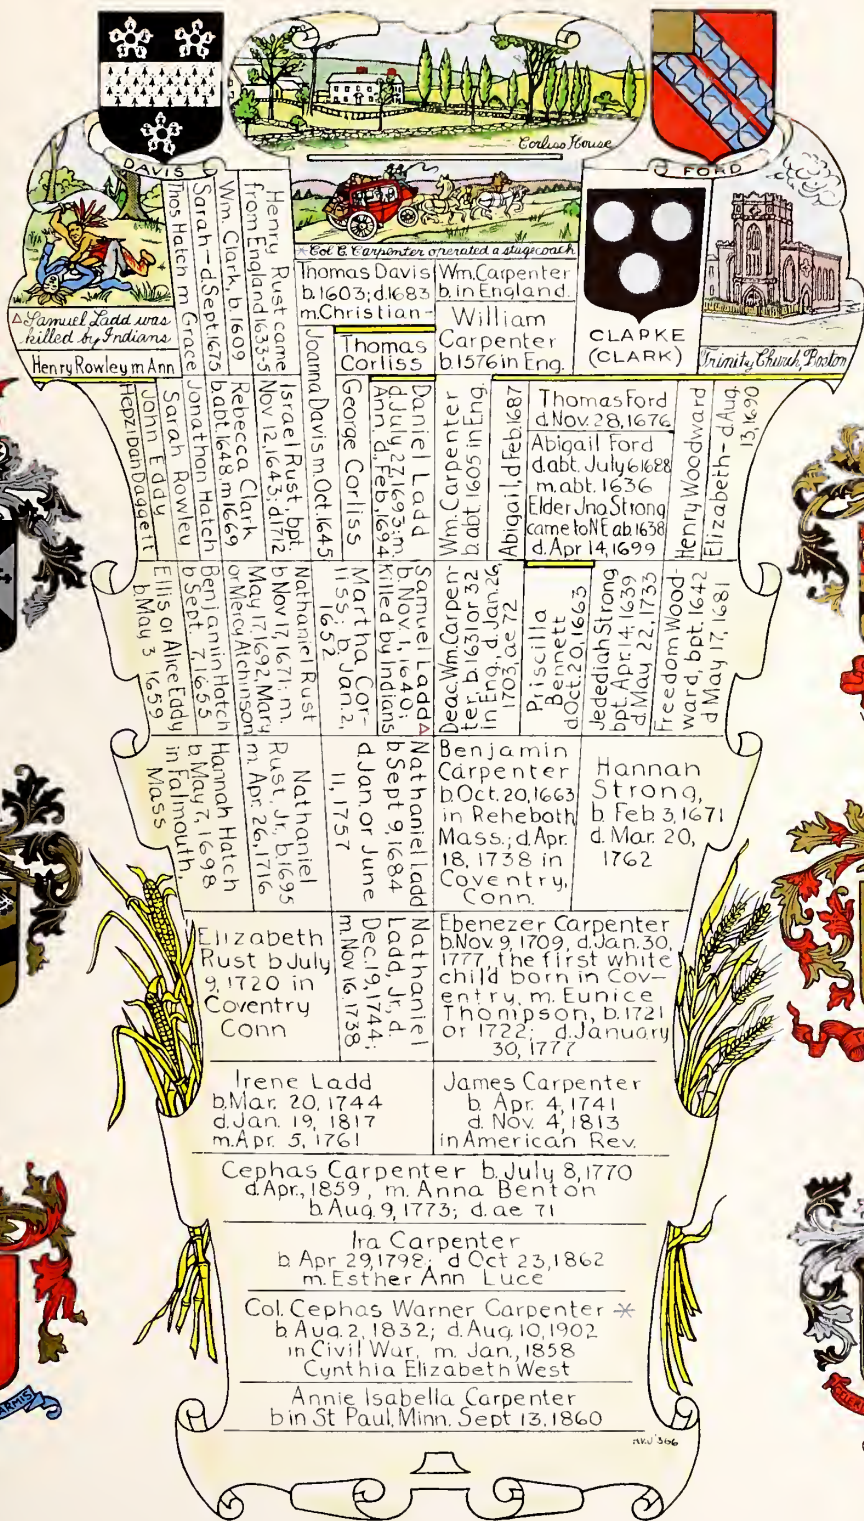 DAVIS
FORD
Corliss House
*Col C. Carpenter operated a stagecoach
△Samuel Ladd was
killed by Indians
Henry Rowley m Ann
Thos Hatch m Grace
Sarah - d. Sept. 1675
Wm. Clark, b. 1609
Henry Rust came
from England 1633-5
Thomas Davis
b. 1603; d. 1683
m. Christian -
Wm. Carpenter
b. in England.
William
Carpenter
b. 1576 in Eng.
Thomas
Corliss
CLARKE
(CLARK)
Trinity Church, Boston
Hepzi Dan Daggett
John Eddy
Sarah Rowley
Jonathon Hatch
Rebecca Clark
b. abt. 1648 m 1669
Israel Rust, bpt.
Nov 12, 1643; d 1712
Joanna Davis m. Oct. 1645
George Corliss
Daniel Ladd
d July 27, 1693; m.
Ann d. Feb, 1694
Wm. Carpenter
b. abt. 1605 in Eng.
Abigail, d Feb 1687
Thomas Ford
d Nov. 28, 1676
Abigail Ford
d abt. July 6 1688
m. abt. 1636
Elder Jno Strong
came to NE ab. 1638
d. Apr 14, 1699
Henry Woodward
Elizabeth - d Aug.
13, 1690
Ellis or Alice Eddy
b. May 3 1659
Benjamin Hatch
b Sept. 7, 1655
Nathaniel Rust
b Nov 17, 1671; m.
May 17 1692, Mary
or Mercy Atchinson
Martha Cor-
liss; b. Jan. 2,
1652
Samuel Ladd△
b Nov. 1, 1640;
Killed by Indians
Deac. Wm. Carpen-
ter, b. 1631 or 32
in Eng., d. Jan. 26,
1703, ae 72
Priscilla
Bennett
d Oct. 20, 1663
Jedediah Strong
bpt. Apr. 14, 1639
d May 22, 1733
Freedom Wood-
ward, bpt. 1642
d May 17, 1681
Hannah Hatch
b May 7, 1698
in Falmouth,
Mass
Nathaniel
Rust, Jr., b. 1695
m. Apr. 26, 1716
Nathaniel Ladd
b Sept 9, 1684
d Jan. or June
11, 1757
Benjamin
Carpenter
b. Oct. 20, 1663
in Reheboth
Mass.; d. Apr.
18, 1738 in
Coventry,
Conn.
Hannah
Strong,
b. Feb 3, 1671
d. Mar. 20,
1762
Elizabeth
Rust b July
9, 1720 in
Coventry
Conn
Nathaniel
Ladd, Jr., d
Dec. 19, 1744;
m. Nov 16 1738
Ebenezer Carpenter
b. Nov. 9, 1709, d. Jan. 30,
1777, the first white
child born in Cov-
entry, m. Eunice
Thompson, b. 1721
or 1722; d. January
30, 1777
Irene Ladd
b. Mar. 20, 1744
d. Jan. 19, 1817
m. Apr. 5, 1761
James Carpenter
b. Apr. 4, 1741
d. Nov. 4, 1813
in American Rev.
Cephas Carpenter b. July 8, 1770
d. Apr., 1859, m. Anna Benton
b. Aug. 9, 1773; d. ae 71
Ira Carpenter
b. Apr 29, 1798; d Oct 23, 1862
m. Esther Ann Luce
Col. Cephas Warner Carpenter *
b. Aug. 2, 1832; d. Aug. 10, 1902
in Civil War, m. Jan., 1858
Cynthia Elizabeth West
Annie Isabella Carpenter
b in St Paul, Minn. Sept 13, 1860
ARMIS